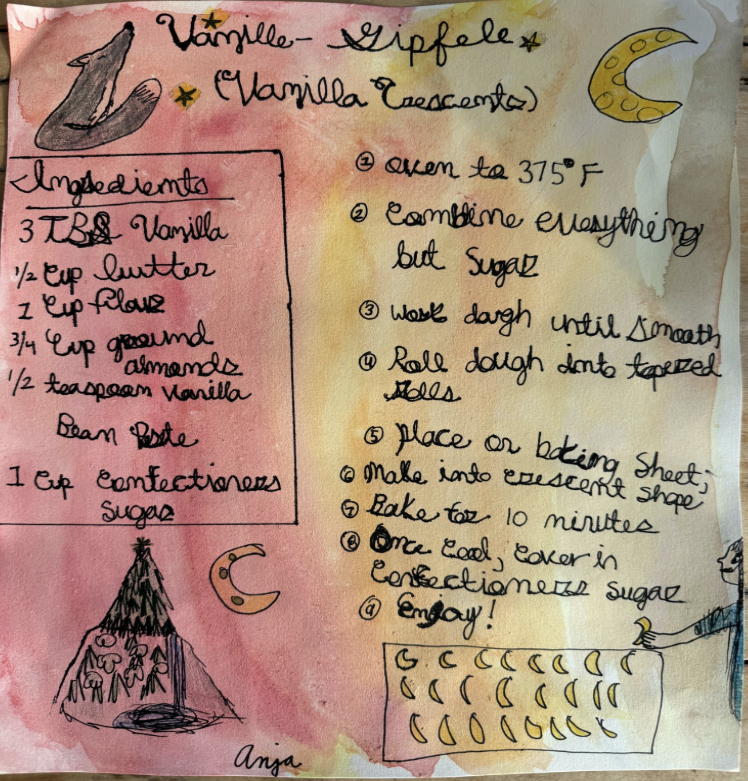 Vanille-Gipfele
(Vanilla Crescents)
Ingredients
3 TBS Vanilla
1/2 Cup butter
1 Cup flour
3/4 Cup ground
almonds
1/2 teaspoon vanilla
Bean Paste
1 Cup Confectioners
Sugar
① oven to 375° F
② Combine everything
but Sugar
③ work dough until Smooth
④ Roll dough into tapered
Rolls
⑤ place on baking sheet;
⑥ Make into crescent shape
⑦ Bake for 10 minutes
⑧ Once Cool, Cover in
Confectioners sugar
⑨ Enjoy!
Anja